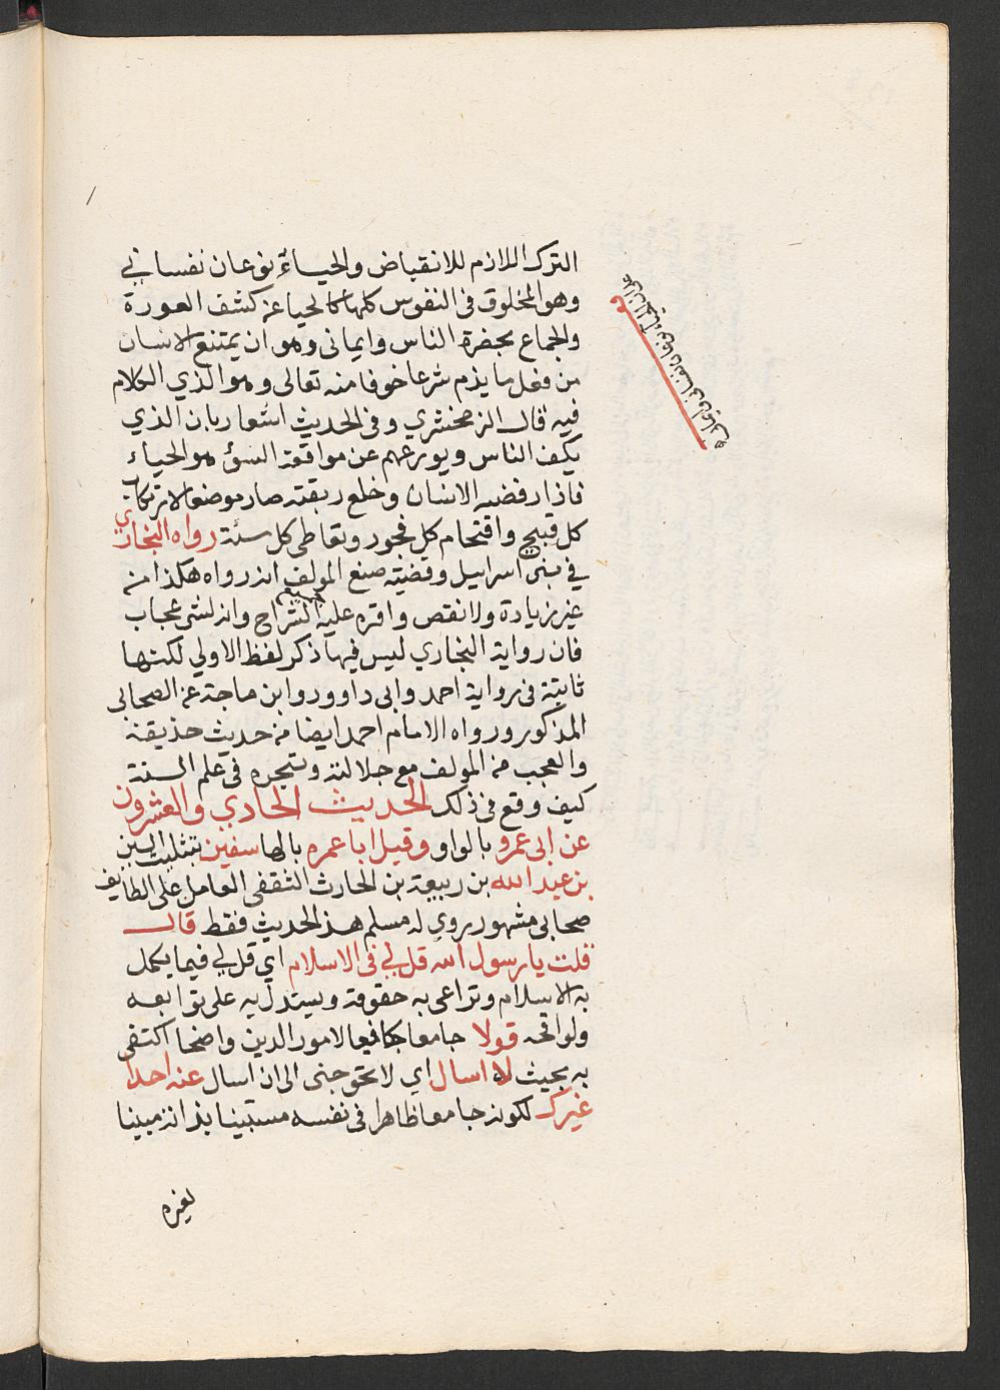 الترك اللازم للانقباض والحياء نوعان نفساني
وهو المخلوق في النفوس كلها كالحيا عن كشف العورة
والجماع بحضرة الناس وايماني وهو ان يمتنع الانسان
من فعل ما يذم شرعا خوفا منه تعالى وهو الذي الكلام
فيه قال الزمخشري وفي الحديث اشعار بان الذي
يكف الناس ويورعهم عن مواقعة السؤ هو الحياء
فاذا رفضه الانسان وخلع ربقته صار موضعا لارتكاب
كل قبيح واقتحام كل فجور وتعاطي كل سئة رواه البخاري
في بني اسرايل وقضيته صنع المولف انه رواه هكذا من
غير زيادة ولا نقص واقره عليه الشراح وانه لشي عجاب
فان رواية البخاري ليس فيها ذكر لفظ الاولي لكنها
ثابتة في رواية احمد وابي داوود وابن ماجة عن الصحابي
المذكور ورواه الامام احمد ايضا من حديث حذيقة
والعجب من المولف مع جلالته وتبحره في علم السنة
كيف وقع في ذلك الحديث الحادي والعشرون
عن ابي عمرو بالواو وقيل ابا عمره بالها سفين بتثليث السين
بن عبد الله بن ربيعة بن الحارث الثقفي العامل على الطايف
صحابي مشهور روي له مسلم هذ الحديث فقط قال
قلت يا رسول الله قل لي في الاسلام اي قل لي فيما يكمل
به الاسلام وتراعى به حقوقه ويستدل به على توابعه
ولواحقه قولا جامعا كافيا لامور الدين واضحا اكتفي
به بحيث لا اسال اي لا تحوجني الى ان اسال عنه احدا
غيرك لكونه جامعا ظاهرا في نفسه مستبينا بذاته مبينا
لغيره
الحيا نوعان نفساني وايماني